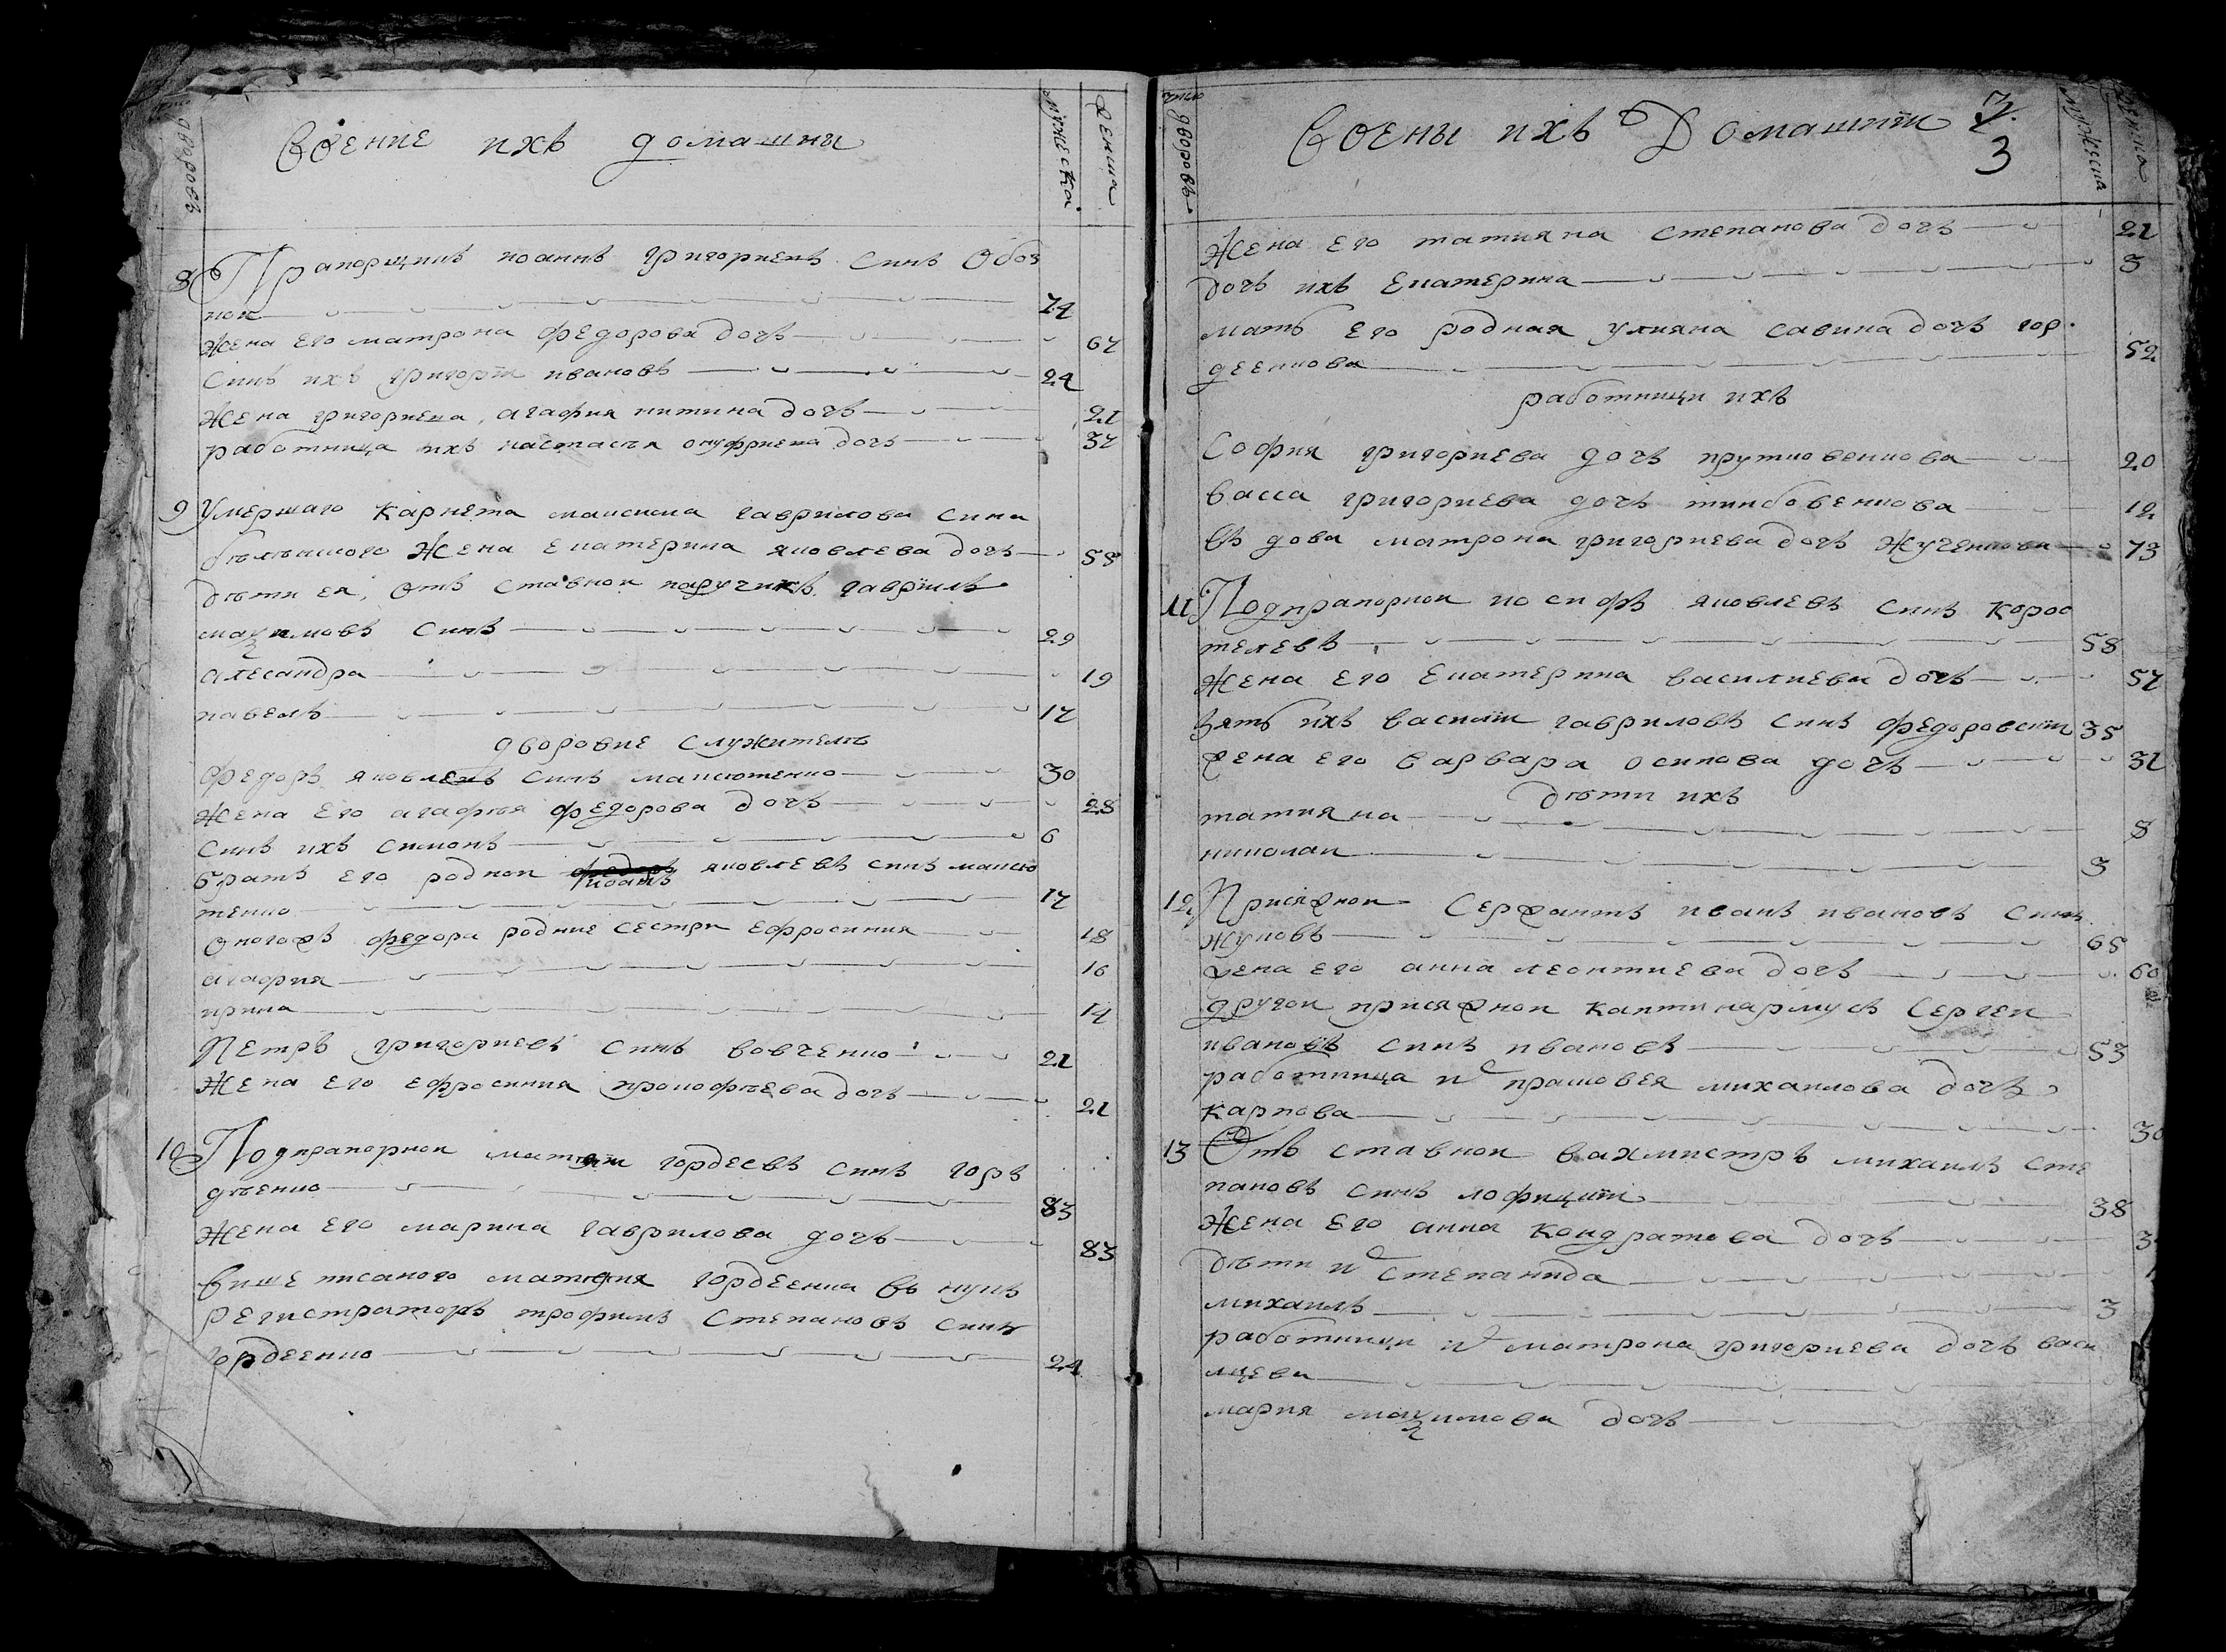 дворовъ
Воение ихъ домашни
мужеска
женска
8 Прапорщикъ иоаннъ григориевъ синъ Обоз
нои 74
жена его матрона федорова дочь 67
синъ ихъ григорїи ивановъ 24
жена григориева, агафия никитина дочь 21
работница ихъ настасъя онуфриева дочь 37
9 Умершаго карнета максима гаврилова сина
жена екатерина яковлева дочь 58
дѣти ея, отъ ставнои поручикъ гаврїилъ
маѯимовъ синъ 29
алеѯандра 19
павелъ 17
дворовие служителѣ
федоръ яковлевъ синъ максютенко 30
жена его агафѣя федорова дочь 28
синъ ихъ симонъ 6
братъ его роднои иоанъ яковлевъ синъ максю
тенко 17
оногожъ федора родние сестри ефросиния 18
агафия 16
ирина 14
Петръ григориевъ синъ вовченко 21
жена его ефросиния прокофѣева дочь 21
10 Подпрапорнои матфеи гордеевъ синъ горъ
дѣенко 83
жена его марина гаврилова дочь 83
више писаного матфия гордеенка внукъ
регистраторъ трофимъ степановъ синъ
гордеенко 24
число дворовъ
Воены ихъ Домашнїи
3
мужеска
женска
жена его татияна степанова дочъ 21
дочъ ихъ екатерина 3
мать его родная улияна савина дочъ гор
деенкова 52
работници ихъ
София григориева дочъ крутковенкова 20
васса григориева дочъ 12
въдова матрона григориева дочъ жученкова 73
11 Подпрапорнои иосифъ яковлевъ синъ корос
телевъ 58
жена его екатерина василиева дочъ 57
зять ихъ василїи гавриловъ синъ федоровскїи 35
жена его варвара осипова дочъ 31
дѣти ихъ
татияна 8
николаи 3
12 Присяжнои сержантъ иванъ ивановъ синъ
жуковъ 65
жена его анна леонтиева дочъ 60
другои присяжнои каптинармусъ сергеи
ивановъ синъ ивановъ 53
работница их прасковея михаилова дочъ
карпова 30
13 Отъ ставнои вахмистръ михаилъ сте
пановъ синъ лофицкїи 38
жена его анна кондратова дочъ
дѣти их степанида
михаилъ 3
работници их матрона григориева дочъ васи
лцева
мария маѯимова дочъ